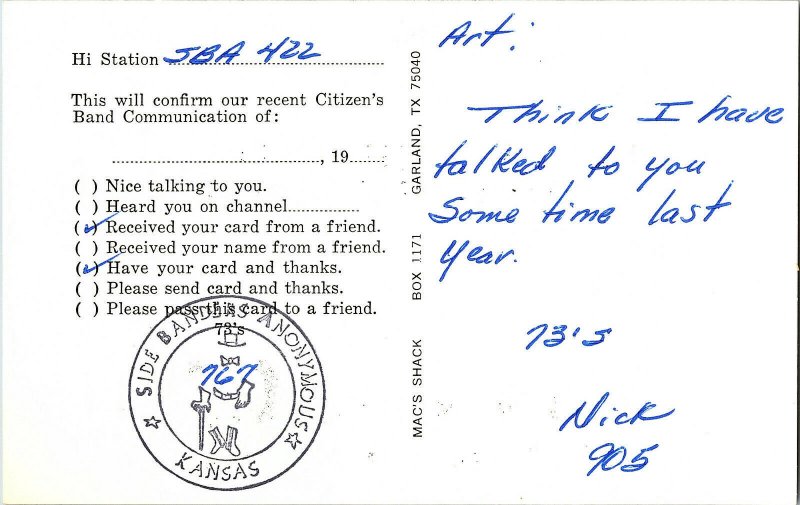 Hi Station SBA 422
This will confirm our recent Citizen's
Band Communication of:
..........................................., 19.......
( ) Nice talking to you.
( ) Heard you on channel...............
(✓) Received your card from a friend.
( ) Received your name from a friend.
(✓) Have your card and thanks.
( ) Please send card and thanks.
( ) Please pass this card to a friend.
73's
SIDE BANDERS ANONYMOUS
767
KANSAS
MAC'S SHACK BOX 1171 GARLAND, TX 75040
Art:
Think I have
talked to you
Some time last
year.
73's
Nick
905